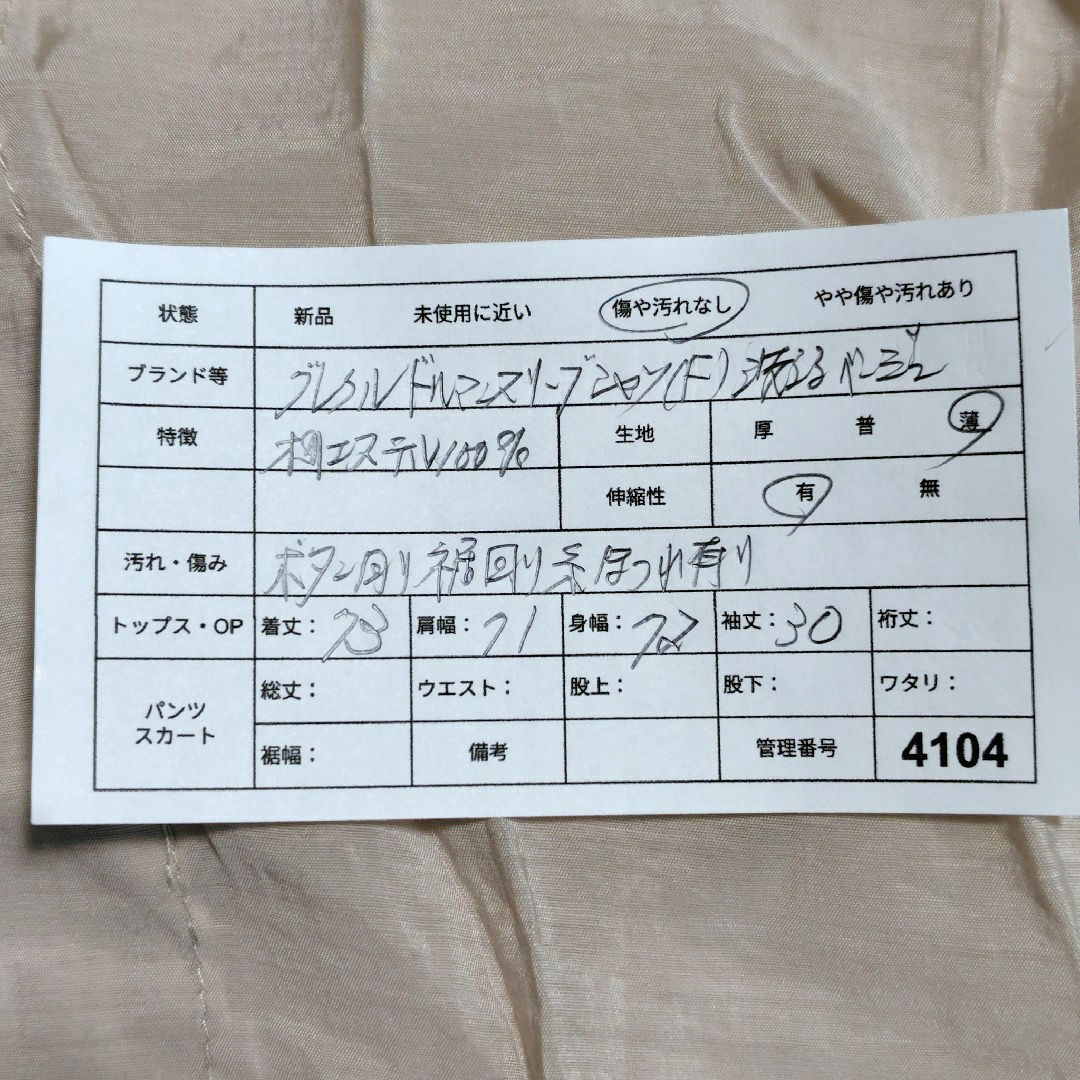 状態 新品 未使用に近い 傷や汚れなし やや傷や汚れあり
ブランド等 ドルマンスリーブシャツ(F) 洗える
特徴 エステル100% 生地 厚 普 薄
伸縮性 有 無
汚れ・傷み ボタン回り裾回り糸ほつれ有り
トップス・OP 着丈: 73 肩幅: 71 身幅: 72 袖丈: 30 裄丈:
パンツ スカート 総丈: ウエスト: 股上: 股下: ワタリ:
裾幅: 備考 管理番号 4104